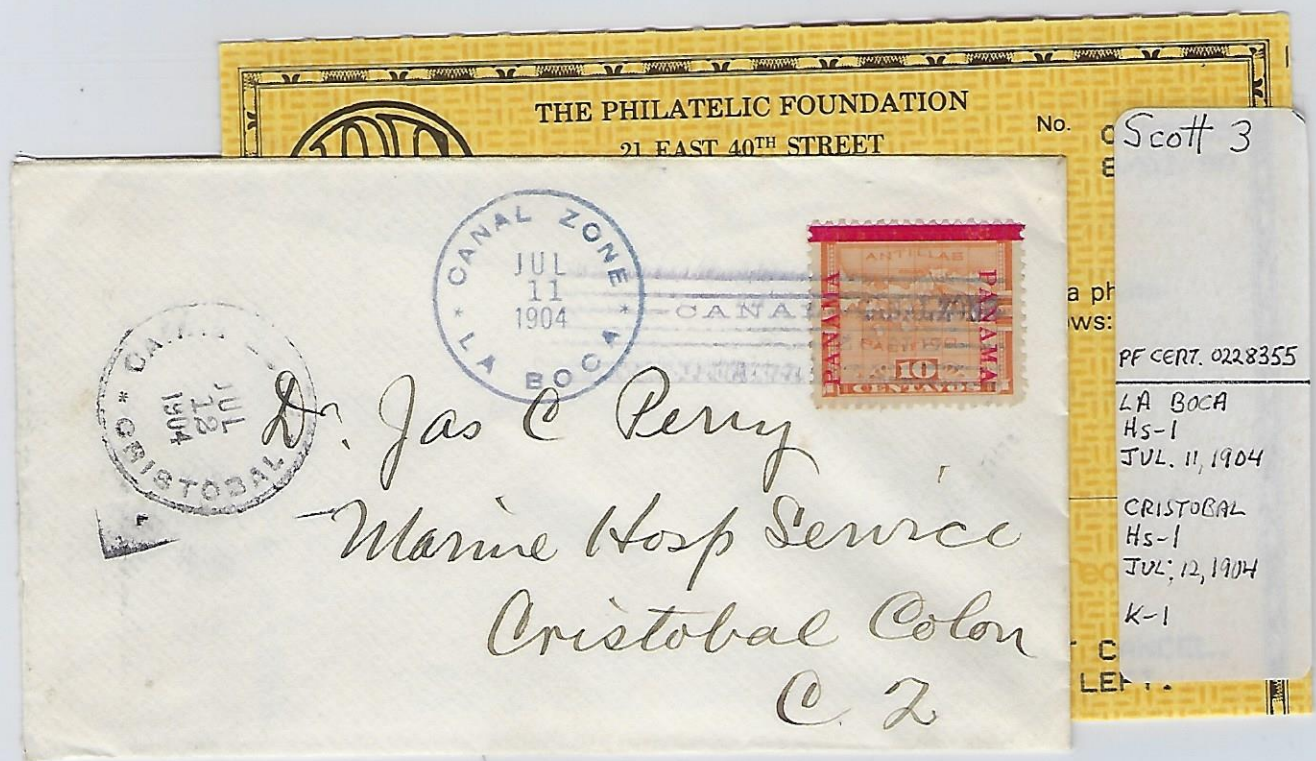 THE PHILATELIC FOUNDATION
21 EAST 40TH STREET
No.
Scott 3
PF CERT. 0228355
LA BOCA
Hs-1
JUL. 11, 1904
CRISTOBAL
Hs-1
JUL. 12, 1904
K-1
a ph
ows:
CANAL ZONE
JUL
11
1904
* LA BOCA *
CANAL
ANTILLAS
PANAMA
PANAMA
10
CENTAVOS
JUL
12
1904
* CRISTOBAL
Dr. Jas C Perry
Marine Hosp Service
Cristobal Colon
C. Z